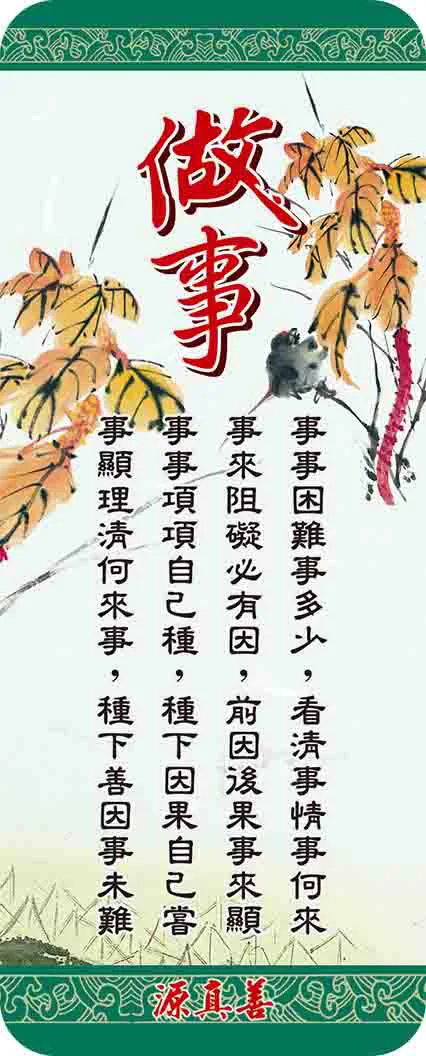 做事
事事困難事多少，看清事情事何來
事來阻礙必有因，前因後果事來顯
事事項項自己種，種下因果自己嘗
事顯理清何來事，種下善因事未難
源真善